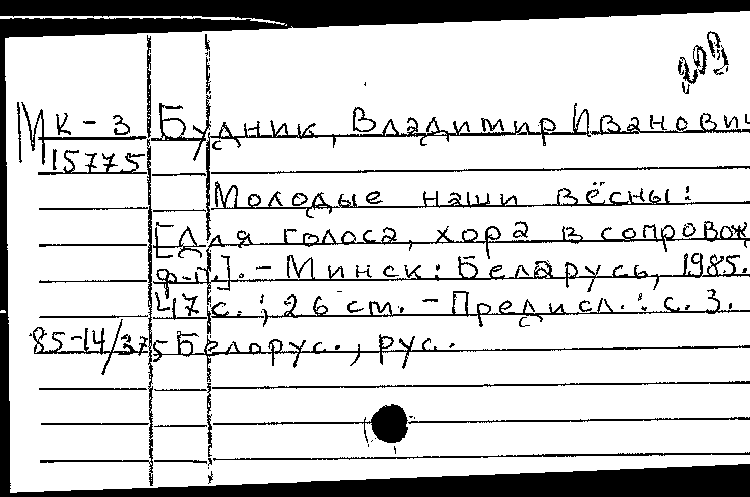 209
МК-3 Будник, Владимир Иванович
15775
Молодые наши вёсны:
[Для голоса, хора в сопровож
ф-п.]. - Минск: Беларусь, 1985.
47 с.; 26 cm. - Предисл.: с. 3.
85-14/375 Белорус., рус.